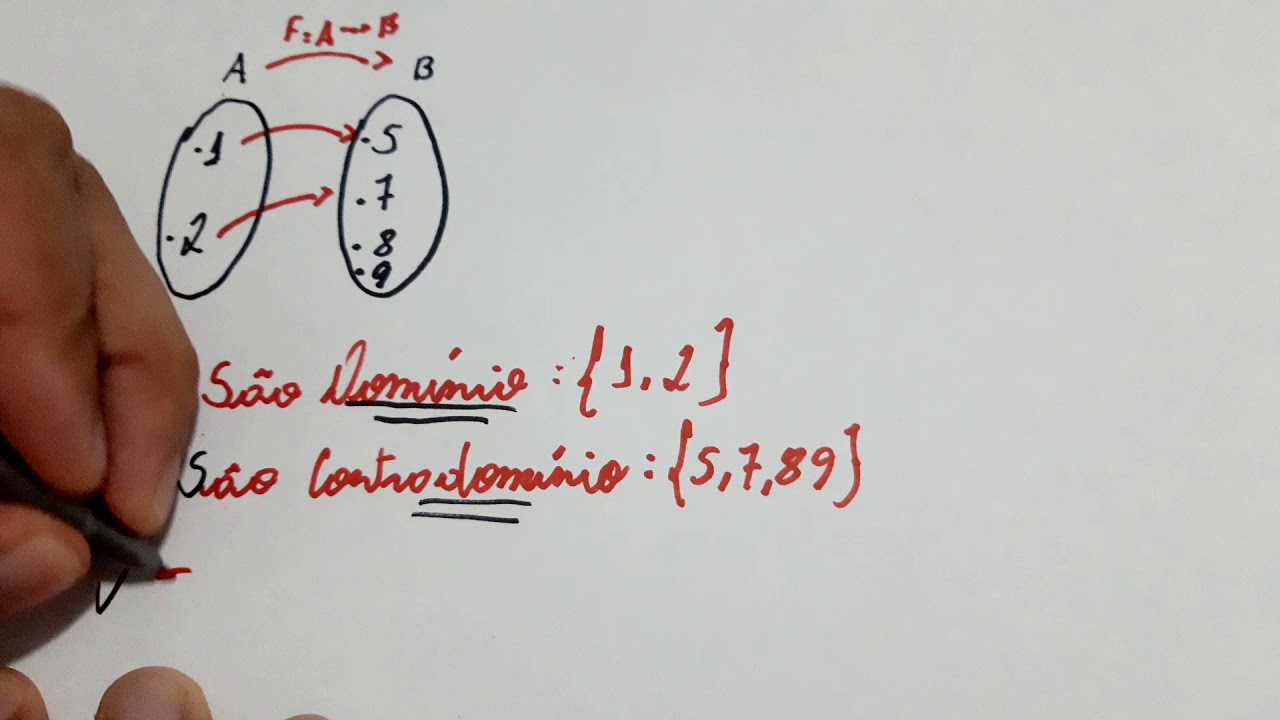 F: A → B
A B
.1 .5
.7
.2
.8
.9
São Domínio : {1, 2}
São Contradomínio : {5, 7, 89}